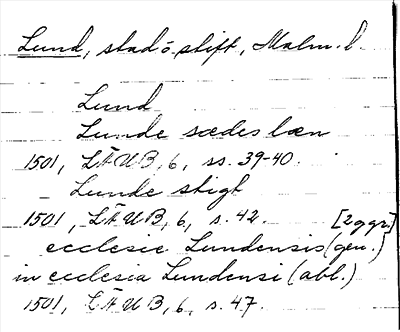 Lund, stad o. stift, Malm. l.
Lund
Lunde sædes læn
1501, LÄUB, 6, ss. 39-40.
Lunde stigt
1501, LÄUB, 6, s. 42. [2 ggr.]
ecclesie Lundensis (gen.)
in ecclesia Lundensi (abl.)
1501, LÄUB, 6, s. 47.